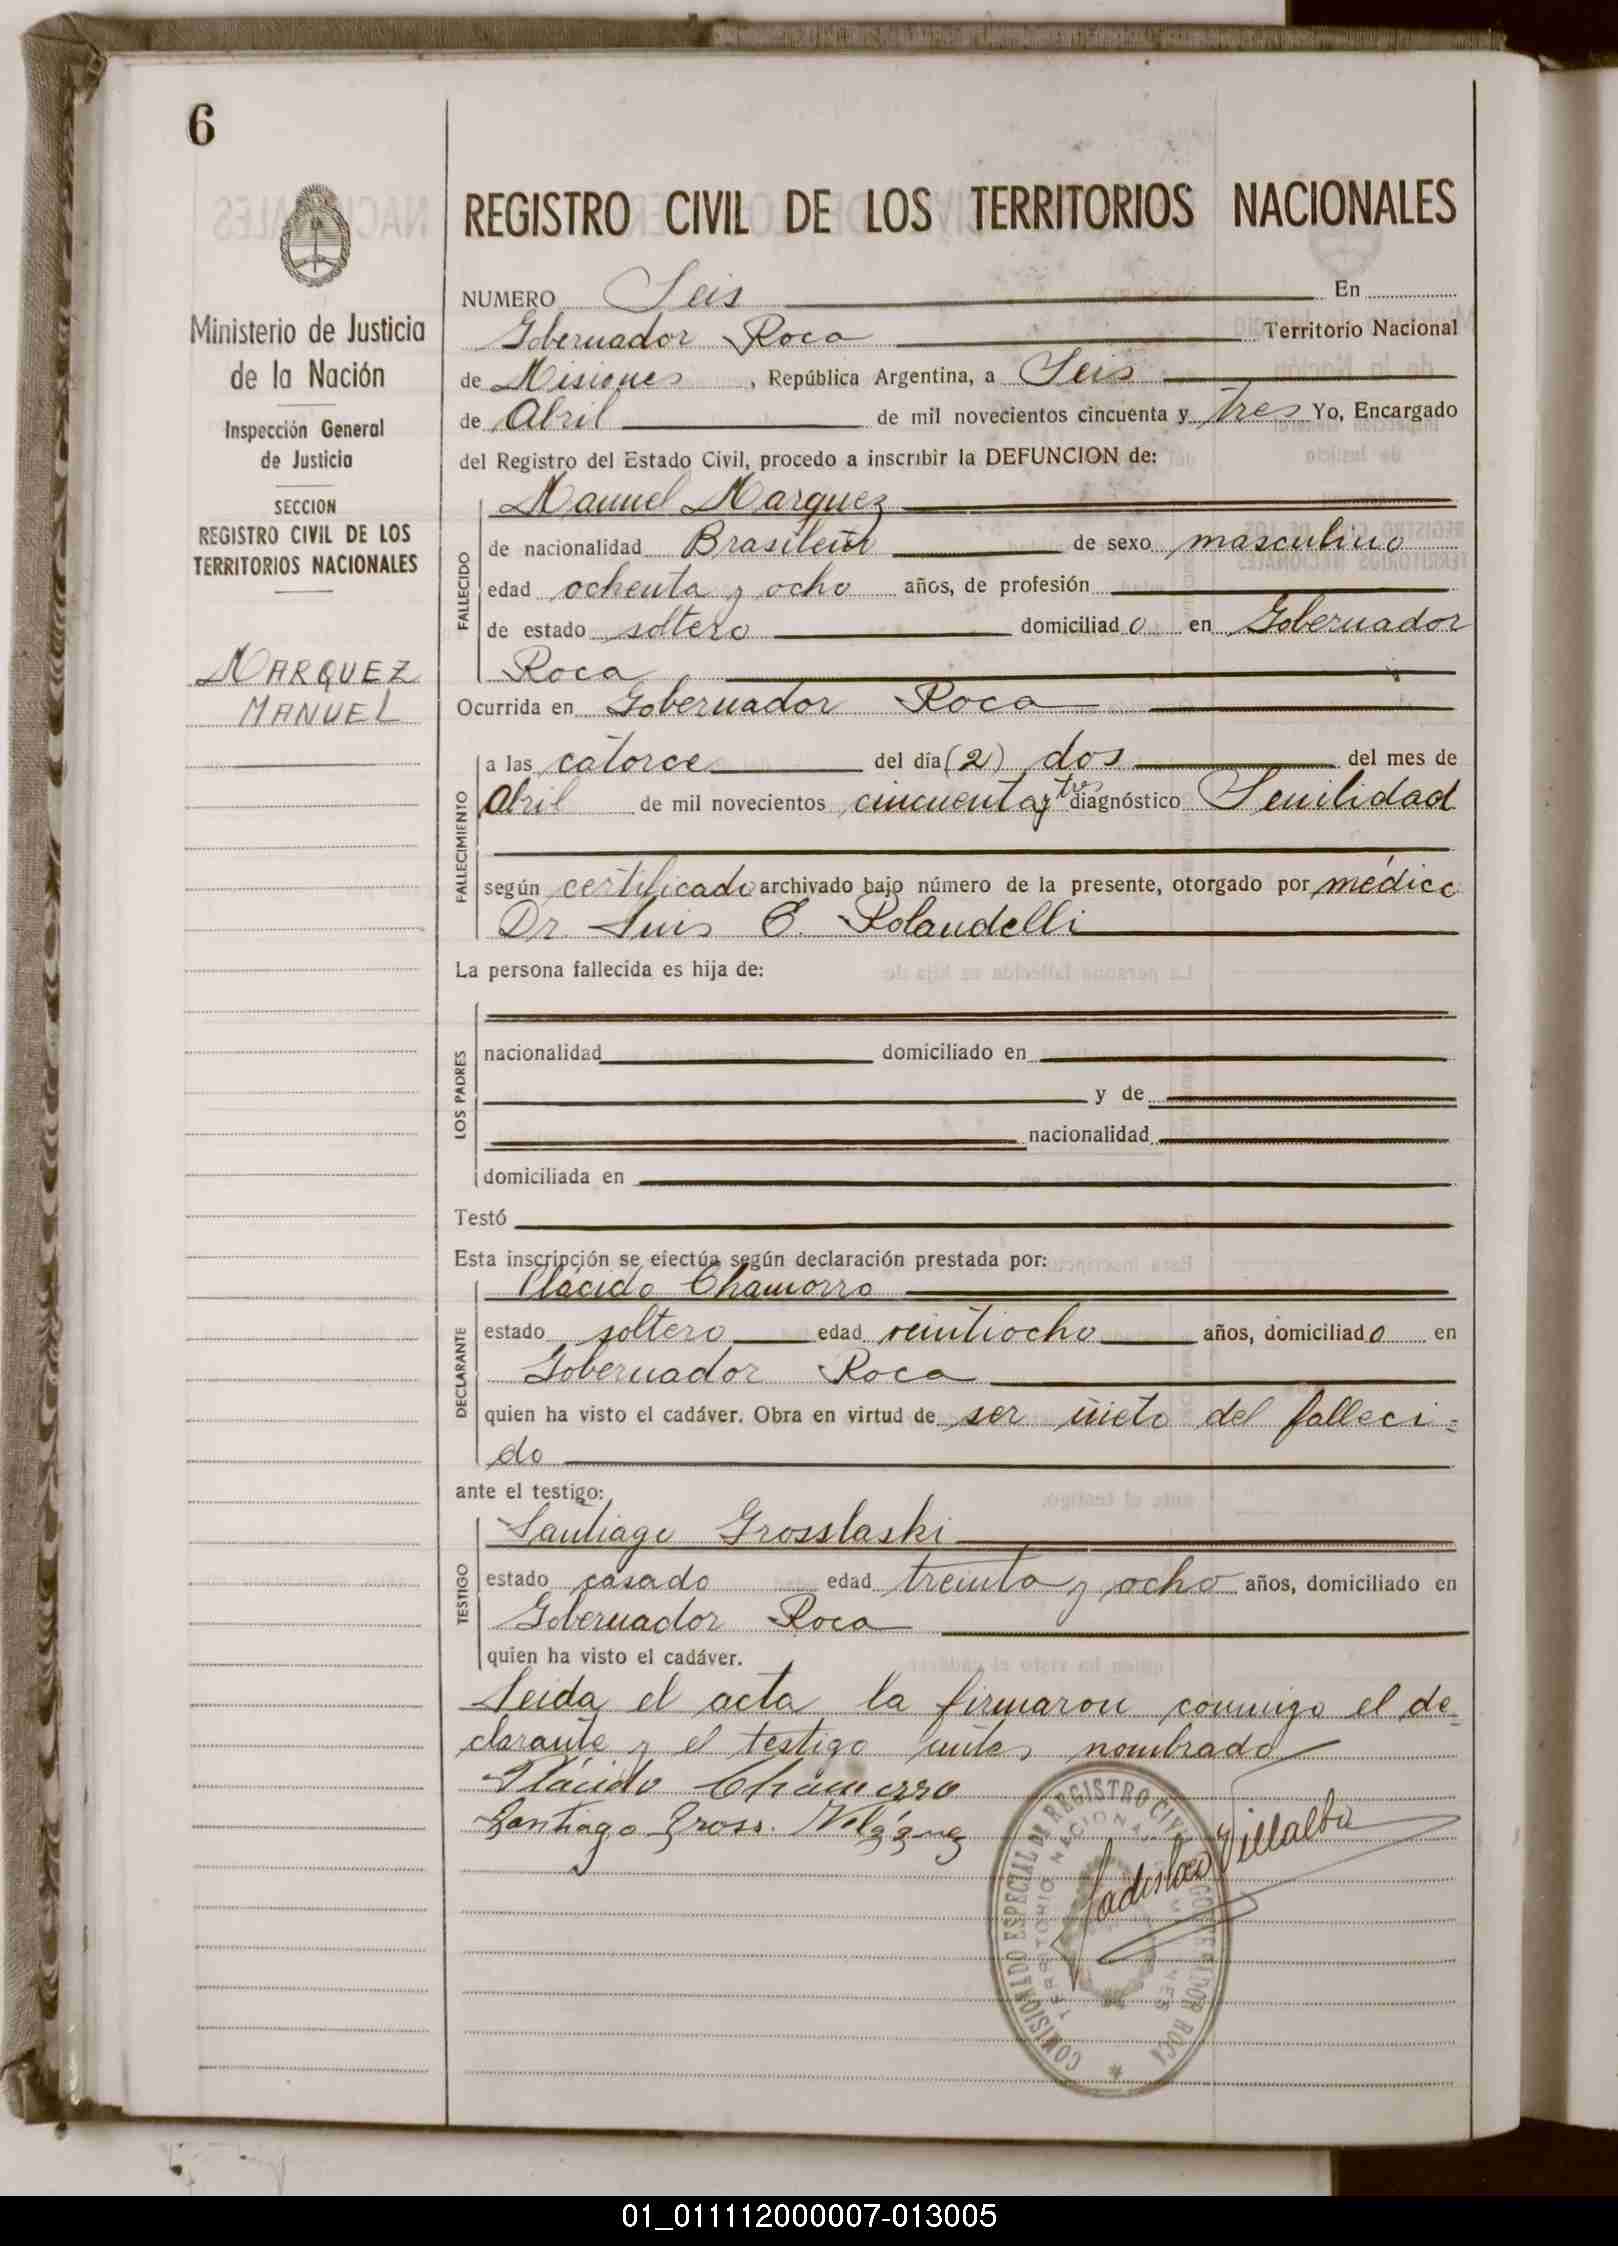 6
Ministerio de Justicia
de la Nación
Inspección General
de Justicia
SECCION
REGISTRO CIVIL DE LOS
TERRITORIOS NACIONALES
MARQUEZ
MANUEL
REGISTRO CIVIL DE LOS TERRITORIOS NACIONALES
NUMERO Seis En
Gobernador Roca Territorio Nacional
de Misiones, República Argentina, a Seis
de Abril de mil novecientos cincuenta y tres Yo, Encargado
del Registro del Estado Civil, procedo a inscribir la DEFUNCION de:
FALLECIDO
Manuel Marquez
de nacionalidad Brasilera de sexo masculino
edad ochenta y ocho años, de profesión
de estado soltero domiciliado en Gobernador
Roca
Ocurrida en Gobernador Roca
FALLECIMIENTO
a las catorce del día (2) dos del mes de
Abril de mil novecientos cincuenta y tres diagnóstico Senilidad
según certificado archivado bajo número de la presente, otorgado por médico
Dr. Luis C. Rolandelli
La persona fallecida es hija de:
LOS PADRES
nacionalidad domiciliado en
y de
nacionalidad
domiciliada en
Testó
Esta inscripción se efectúa según declaración prestada por:
DECLARANTE
Placido Chamorro
estado soltero edad veintiocho años, domiciliado en
Gobernador Roca
quien ha visto el cadáver. Obra en virtud de ser nieto del falleci=
do
ante el testigo:
TESTIGO
Santiago Grosslaski
estado casado edad treinta y ocho años, domiciliado en
Gobernador Roca
quien ha visto el cadáver.
Leida el acta la firmaron conmigo el de-
clarante y el testigo antes nombrado
Plácido Chamorro
Santiago Gross.
Ladislao Villalba
COMISIONADO ESPECIAL DE REGISTRO CIVIL GOBERNADOR ROCA
TERRITORIO NACIONAL MISIONES
01_011112000007-013005